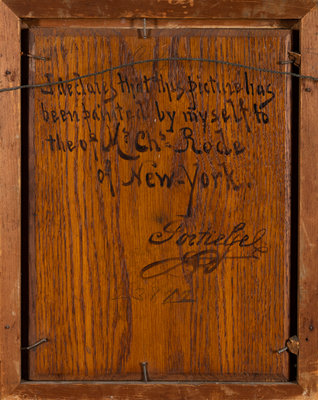 I declares that this picture has
been painted by myself to
the of Mr. Chs. Rode
of New-York.